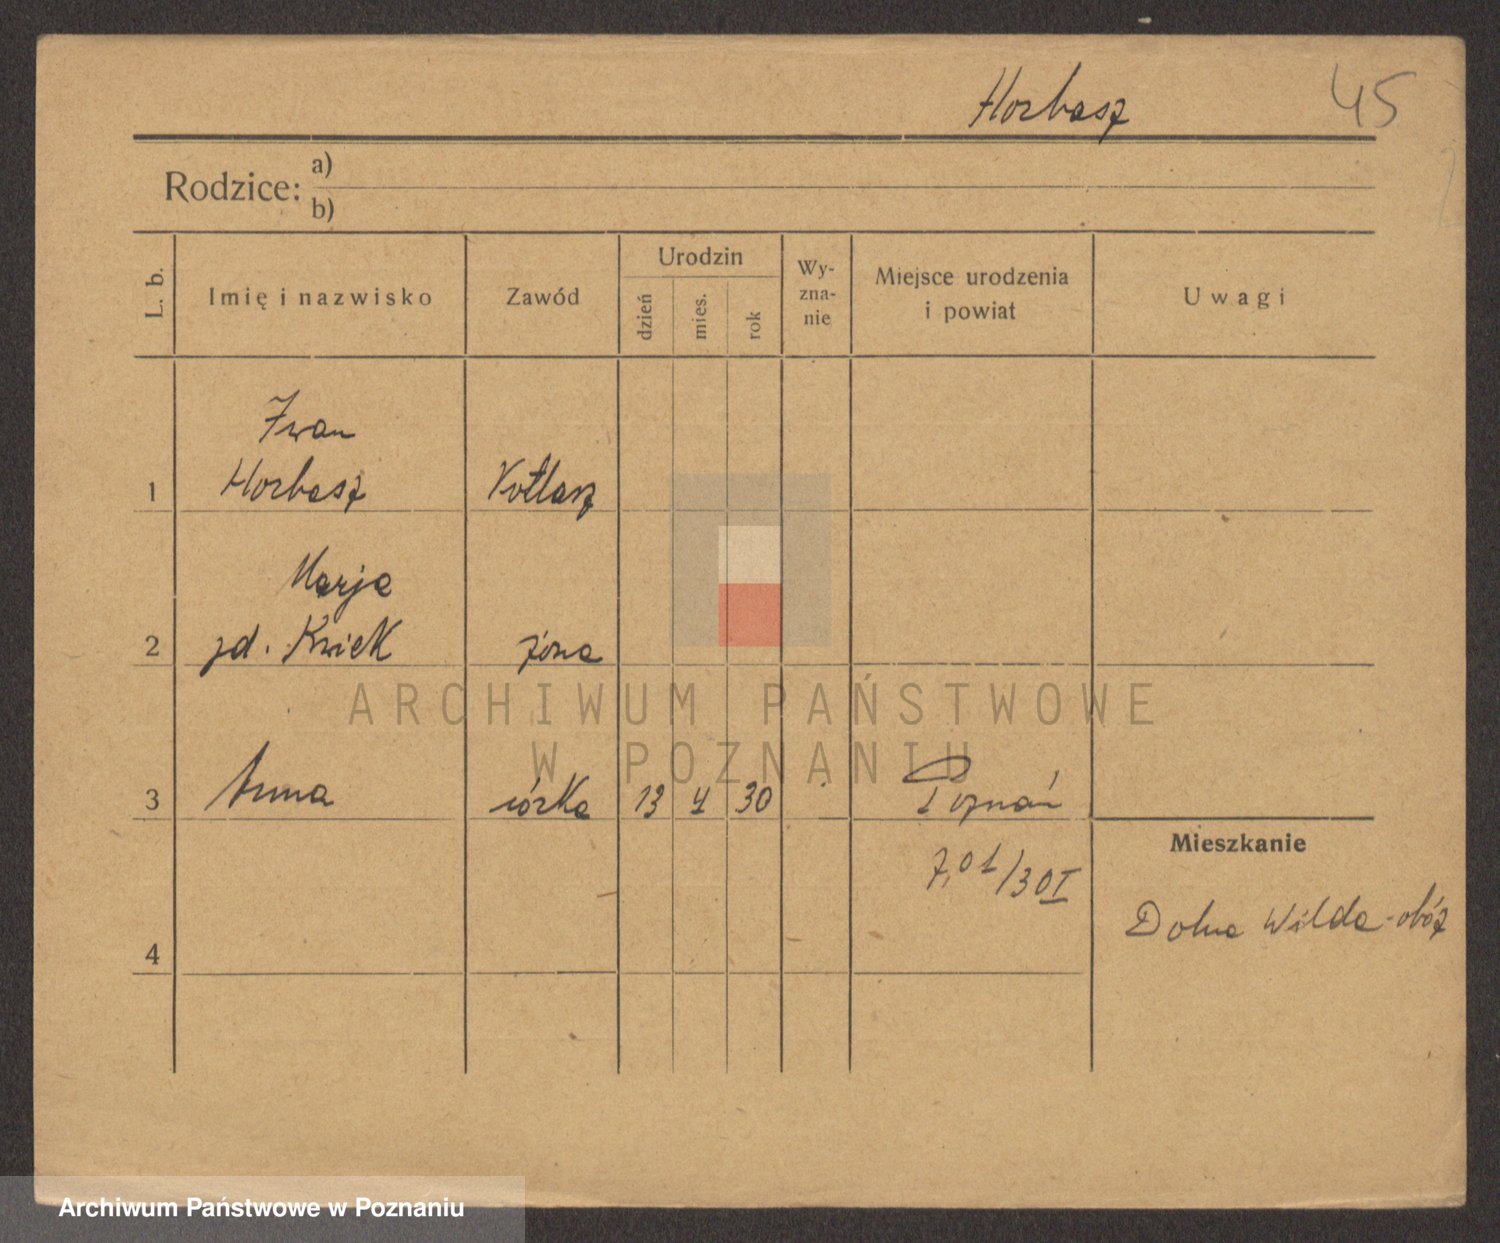 Horbasz 45
Rodzice: a)
b)
L. b.
Imię i nazwisko
Zawód
Urodzin
dzień
mies.
rok
Wy-
zna-
nie
Miejsce urodzenia
i powiat
Uwagi
Iwan
1 Horbasz Kotlarz
Marja
2 zd. Kwiek żona
3 Anna córka 13 4 30 Poznań
Mieszkanie
Dolna Wilda - obóz
4
ARCHIWUM PAŃSTWOWE
W POZNANIU
Archiwum Państwowe w Poznaniu